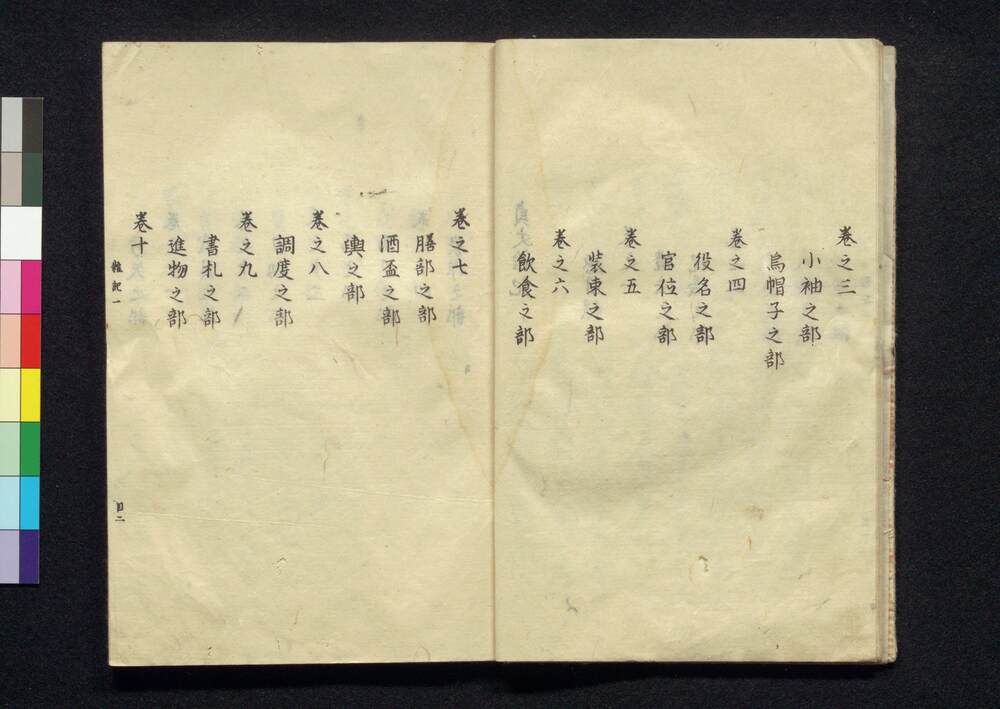 巻之三
小袖之部
烏帽子之部
巻之四
役名之部
官位之部
巻之五
装束之部
巻之六
飲食之部
巻之七
膳部之部
酒盃之部
輿之部
巻之八
調度之部
巻之九
書札之部
進物之部
巻十
雑記一
目二